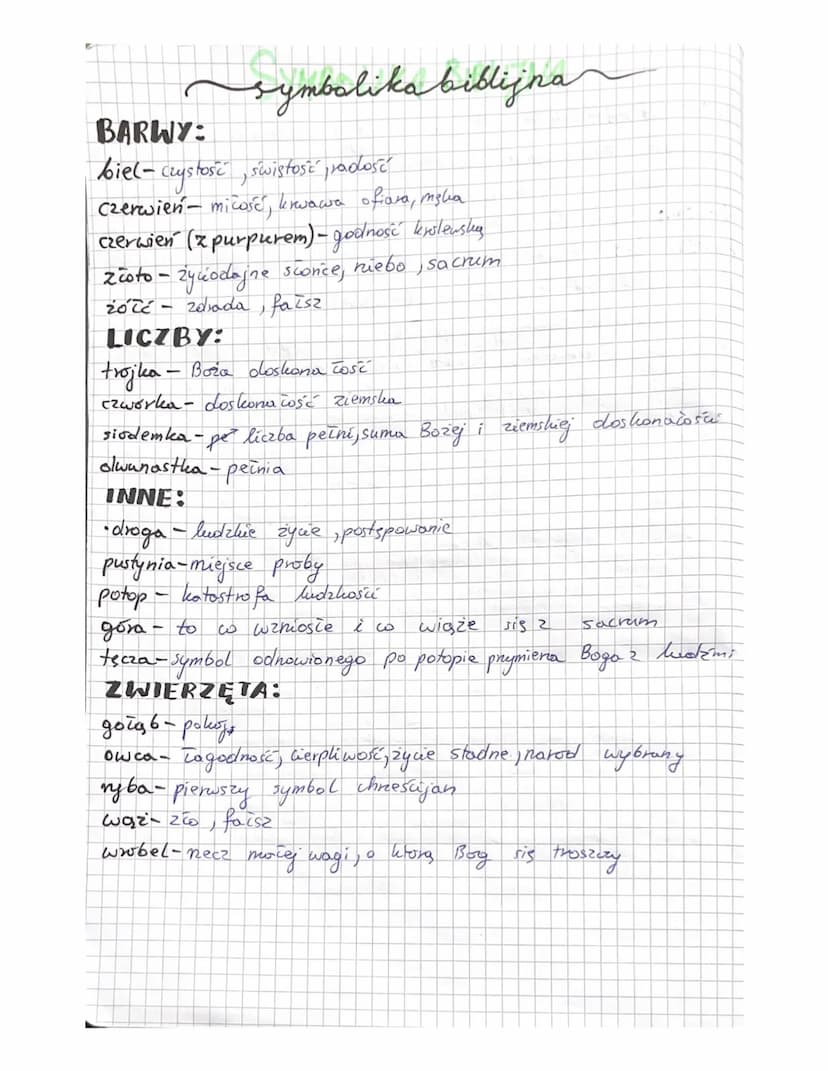 symbolika biblijna
BARWY:
biel - czystość, świętość, radość
czerwień - miłość, krwawa ofiara, męka
czerwień (z purpurem) - godność królewską
złoto - życiodajne słońce, niebo, sacrum
żółć - zdrada, fałsz
LICZBY:
trójka - Boża doskonałość
czwórka - doskonałość ziemska
siódemka - peł liczba pełni, suma Bożej i ziemskiej doskonałości
dwunastka - pełnia
INNE:
• droga - ludzkie życie, postępowanie
pustynia - miejsce próby
potop - katastrofa ludzkości
góra - to co wzniosłe i co wiąże się z sacrum
tęcza - symbol odnowionego po potopie przymierza Boga z ludźmi
ZWIERZĘTA:
gołąb - pokój,
owca - łagodność, cierpliwość, życie stadne, naród wybrany
ryba - pierwszy symbol chrześcijan
wąż - zło, fałsz
wróbel - rzecz małej wagi, o którą Bóg się troszczy